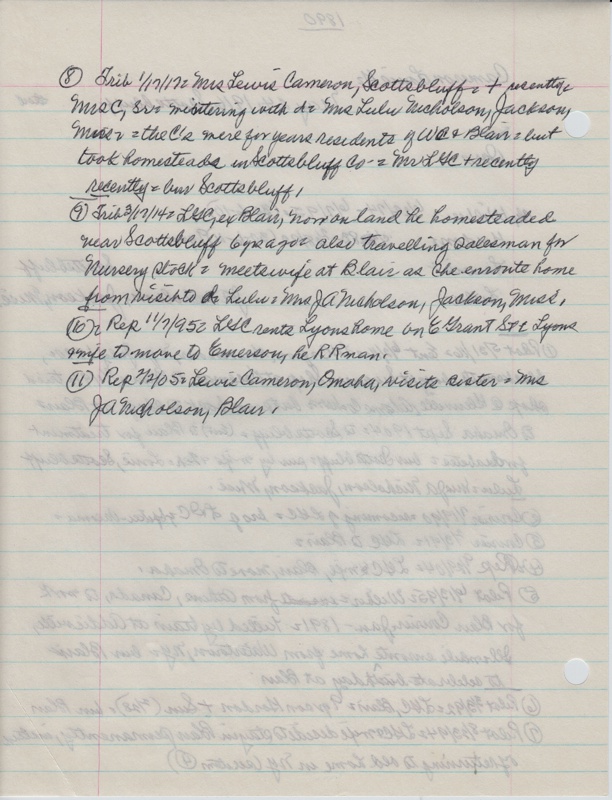 1890
(8) Trib 1/17/17 = Mrs Lewis Cameron, Scottsbluff = + recently =
Mrs C, Sr = wintering with d = Mrs Lulu Nicholson, Jackson,
Miss = the C's were for years residents of WC & Blair = but
took homesteads in Scottsbluff Co = Mr LSC + recently
recently = bur Scottsbluff.
(9) Trib 3/12/14 = LSC, ex Blair, now on land he homesteaded
near Scottsbluff 6 yrs ago = also travelling salesman for
Nursery Stock = meets wife at Blair as she enroute home
from visit to d Lulu = Mrs JA Nicholson, Jackson, Miss.
(10) = Rep 11/7/95 = LSC rents Lyons home on E Grant St = Lyons
& wife to move to Emerson, he RR man.
(11) Rep 2/2/05 = Lewis Cameron, Omaha, visits sister = Mrs
JA Nicholson, Blair.